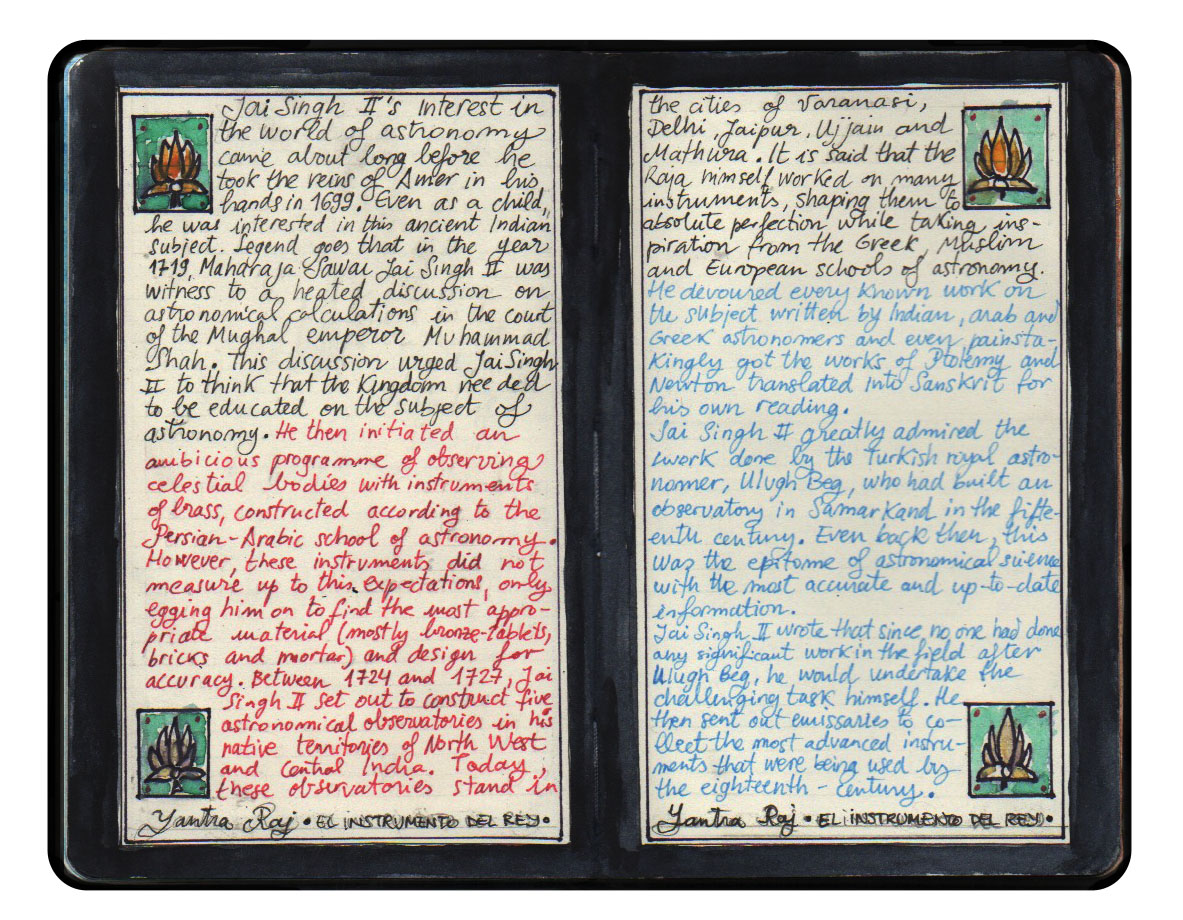 Jai Singh II's interest in
the world of astronomy
came about long before he
took the reins of Amer in his
hands in 1699. Even as a child,
he was interested in this ancient Indian
subject. Legend goes that in the year
1719, Maharaja Sawai Jai Singh II was
witness to a heated discussion on
astronomical calculations in the court
of the Mughal emperor Muhammad
Shah. This discussion urged Jai Singh
II to think that the Kingdom needed
to be educated on the subject of
astronomy. He then initiated an
ambicious programme of observing
celestial bodies with instruments
of brass, constructed according to the
Persian-Arabic school of astronomy.
However, these instruments did not
measure up to this expectations, only
egging him on to find the most appro-
priate material (mostly bronze-tablets,
bricks and mortar) and design for
accuracy. Between 1724 and 1727, Jai
Singh II set out to construct five
astronomical observatories in his
native territories of North West
and Central India. Today,
these observatories stand in
Yantra Raj • EL INSTRUMENTO DEL REY •
the cities of Varanasi,
Delhi, Jaipur, Ujjain and
Mathura. It is said that the
Raja himself worked on many
instruments, shaping them to
absolute perfection while taking ins-
piration from the Greek, Muslim
and European schools of astronomy.
He devoured every known work on
the subject written by Indian, arab and
Greek astronomers and even painsta-
kingly got the works of Ptolemy and
Newton translated into Sanskrit for
his own reading.
Jai Singh II greatly admired the
work done by the Turkish royal astro-
nomer, Ulugh Beg, who had built an
observatory in Samarkand in the fifte-
enth century. Even back then, this
was the epitome of astronomical science
with the most accurate and up-to-date
information.
Jai Singh II wrote that since no one had done
any significant work in the field after
Ulugh Beg, he would undertake the
challenging task himself. He
then sent out emissaries to co-
llect the most advanced instru-
ments that were being used by
the eighteenth - century.
Yantra Raj • EL INSTRUMENTO DEL REY •